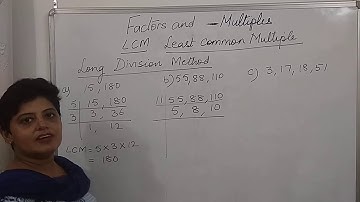 Factors and - Multiples
LCM Least common Multiple
Long Division Method
a) 15, 180
5 | 15, 180
3 | 3, 36
1, 12
LCM = 5 × 3 × 12
= 180
b) 55, 88, 110
11 | 55, 88, 110
5, 8, 10
c) 3, 17, 18, 51